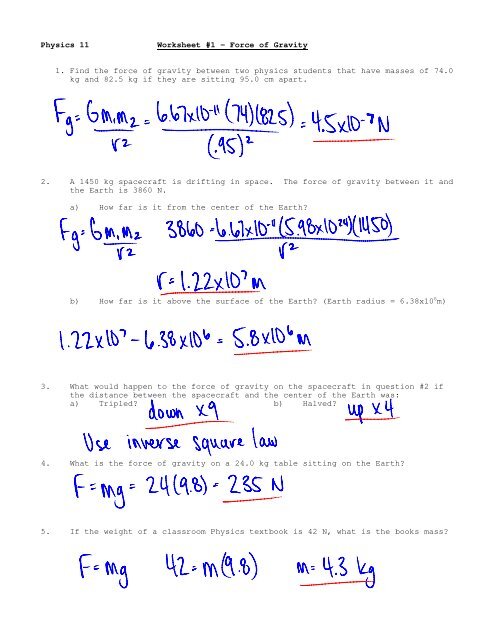 Physics 11 Worksheet #1 – Force of Gravity
1. Find the force of gravity between two physics students that have masses of 74.0
kg and 82.5 kg if they are sitting 95.0 cm apart.
Fg = Gm₁m₂/r² = 6.67x10⁻¹¹(74)(82.5)/(.95)² = 4.5x10⁻⁷N
2. A 1450 kg spacecraft is drifting in space. The force of gravity between it and
the Earth is 3860 N.
a) How far is it from the center of the Earth?
Fg = Gm₁m₂/r² 3860 = 6.67x10⁻¹¹(5.98x10²⁴)(1450)/r²
r = 1.22x10⁷m
b) How far is it above the surface of the Earth? (Earth radius = 6.38x10⁶m)
1.22x10⁷ - 6.38x10⁶ = 5.8x10⁶m
3. What would happen to the force of gravity on the spacecraft in question #2 if
the distance between the spacecraft and the center of the Earth was:
a) Tripled? down x9 b) Halved? up x4
Use inverse square law
4. What is the force of gravity on a 24.0 kg table sitting on the Earth?
F = mg = 24(9.8) = 235 N
5. If the weight of a classroom Physics textbook is 42 N, what is the books mass?
F = mg 42 = m(9.8) m = 4.3 kg